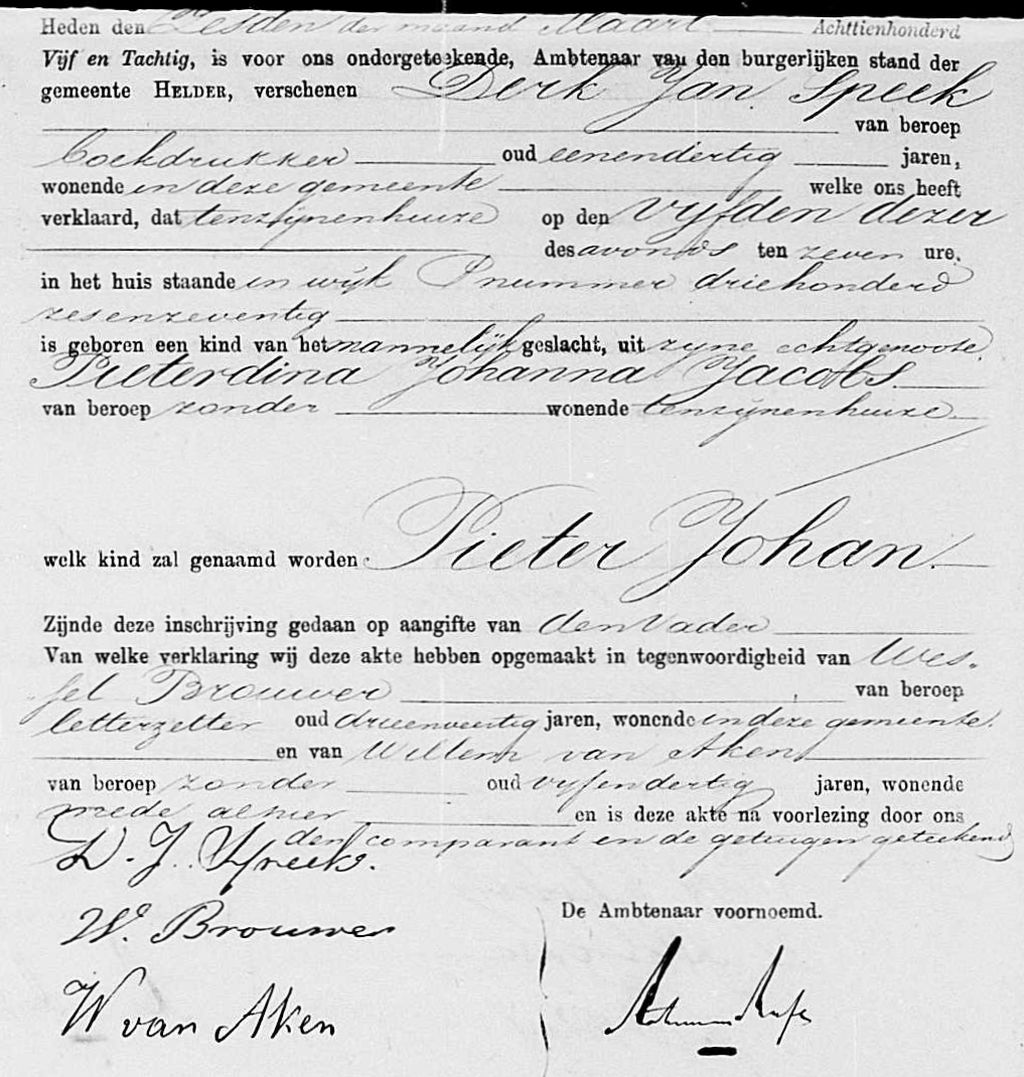 Heden den Zesden der maand Maart Achttienhonderd
Vijf en Tachtig, is voor ons ondergeteekende, Ambtenaar van den burgerlijken stand der
gemeente HELDER, verschenen Derk Jan Speek
van beroep
Boekdrukker oud eenendertig jaren,
wonende in deze gemeente welke ons heeft
verklaard, dat tenzijnenhuize op den vyfden dezer
des avonds ten zeven ure,
in het huis staande in wijk P nummer driehonderd
zesenzeventig
is geboren een kind van het mannelijk geslacht, uit zyne echtgenoote,
Pieterdina Johanna Jacobs
van beroep zonder wonende tenzijnenhuize
welk kind zal genaamd worden: Pieter Johan.
Zijnde deze inschrijving gedaan op aangifte van den Vader
Van welke verklaring wij deze akte hebben opgemaakt in tegenwoordigheid van Wes-
sel Brouwer van beroep
letterzetter oud drieenveertig jaren, wonende in deze gemeente.
en van Willem van Aken,
van beroep zonder oud vyfendertig jaren, wonende
mede alhier en is deze akte na voorlezing door ons
den comparant en de getuigen geteekend
D. J. Speek.
W. Brouwer
De Ambtenaar voornoemd.
W van Aken